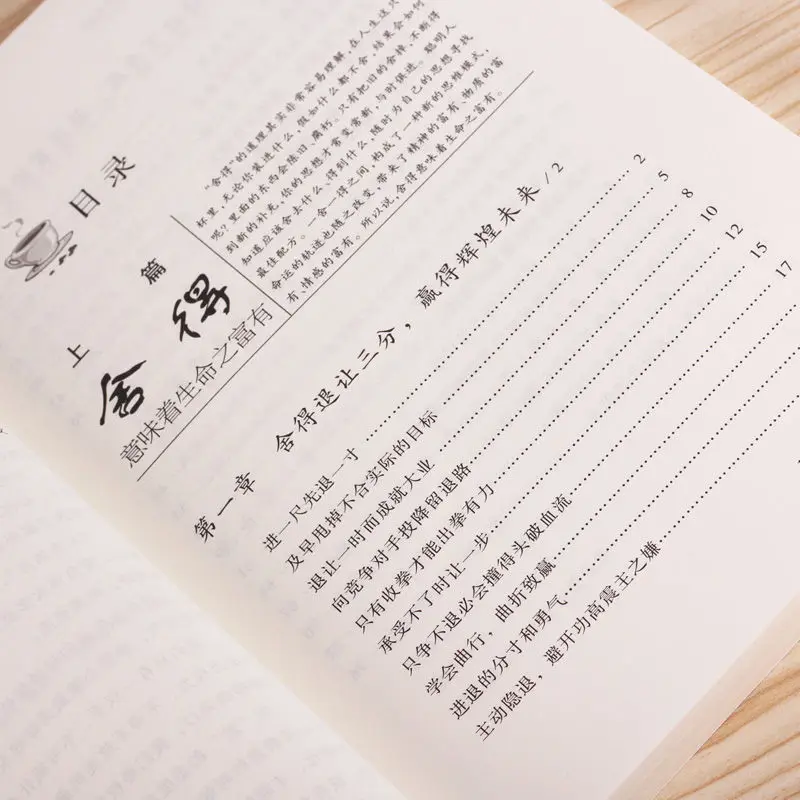 目录
上篇
舍得
意味着生命之富有
“舍得”的道理其实非常容易理解，在人生这只
杯里，无论你装进什么，假如什么都不舍，结果会如何
呢？里面的东西会陈旧、腐朽。只有把旧的舍掉，不断得
到新的补充，你的思想才常变常新，与时俱进。聪明人
知道应该舍去什么、得到什么，随时为自己的思想寻找
最佳配方。一舍一得之间，构成了一种新的思维模式，
命运的轨迹也随之改变，带来了精神的富有、物质的富
有、情感的富有。所以说，舍得意味着生命之富有。
第一章 舍得退让三分，赢得辉煌未来 / 2
进一尺先退一寸 2
及早甩掉不合实际的目标 5
退让一时而成就大业 8
向竞争对手投降留退路 10
只有收拳才能出拳有力 12
承受不了时让一步 15
只争不退必会撞得头破血流 17
学会曲行，曲折致赢
进退的分寸和勇气
主动隐退，避开功高震主之嫌